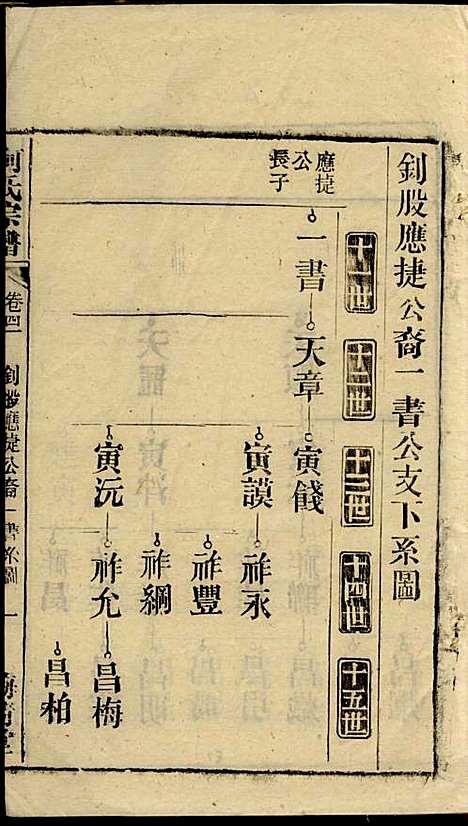 釗股應捷公裔一書公支下系圖
十一世
十二世
十三世
十四世
十五世
應捷公長子
一書
天章
寅餞
寅謨
祚永
祚豐
祚綱
寅沅
祚允
昌梅
昌柏
氏宗譜
卷四
釗股應捷公裔一書系圖
一